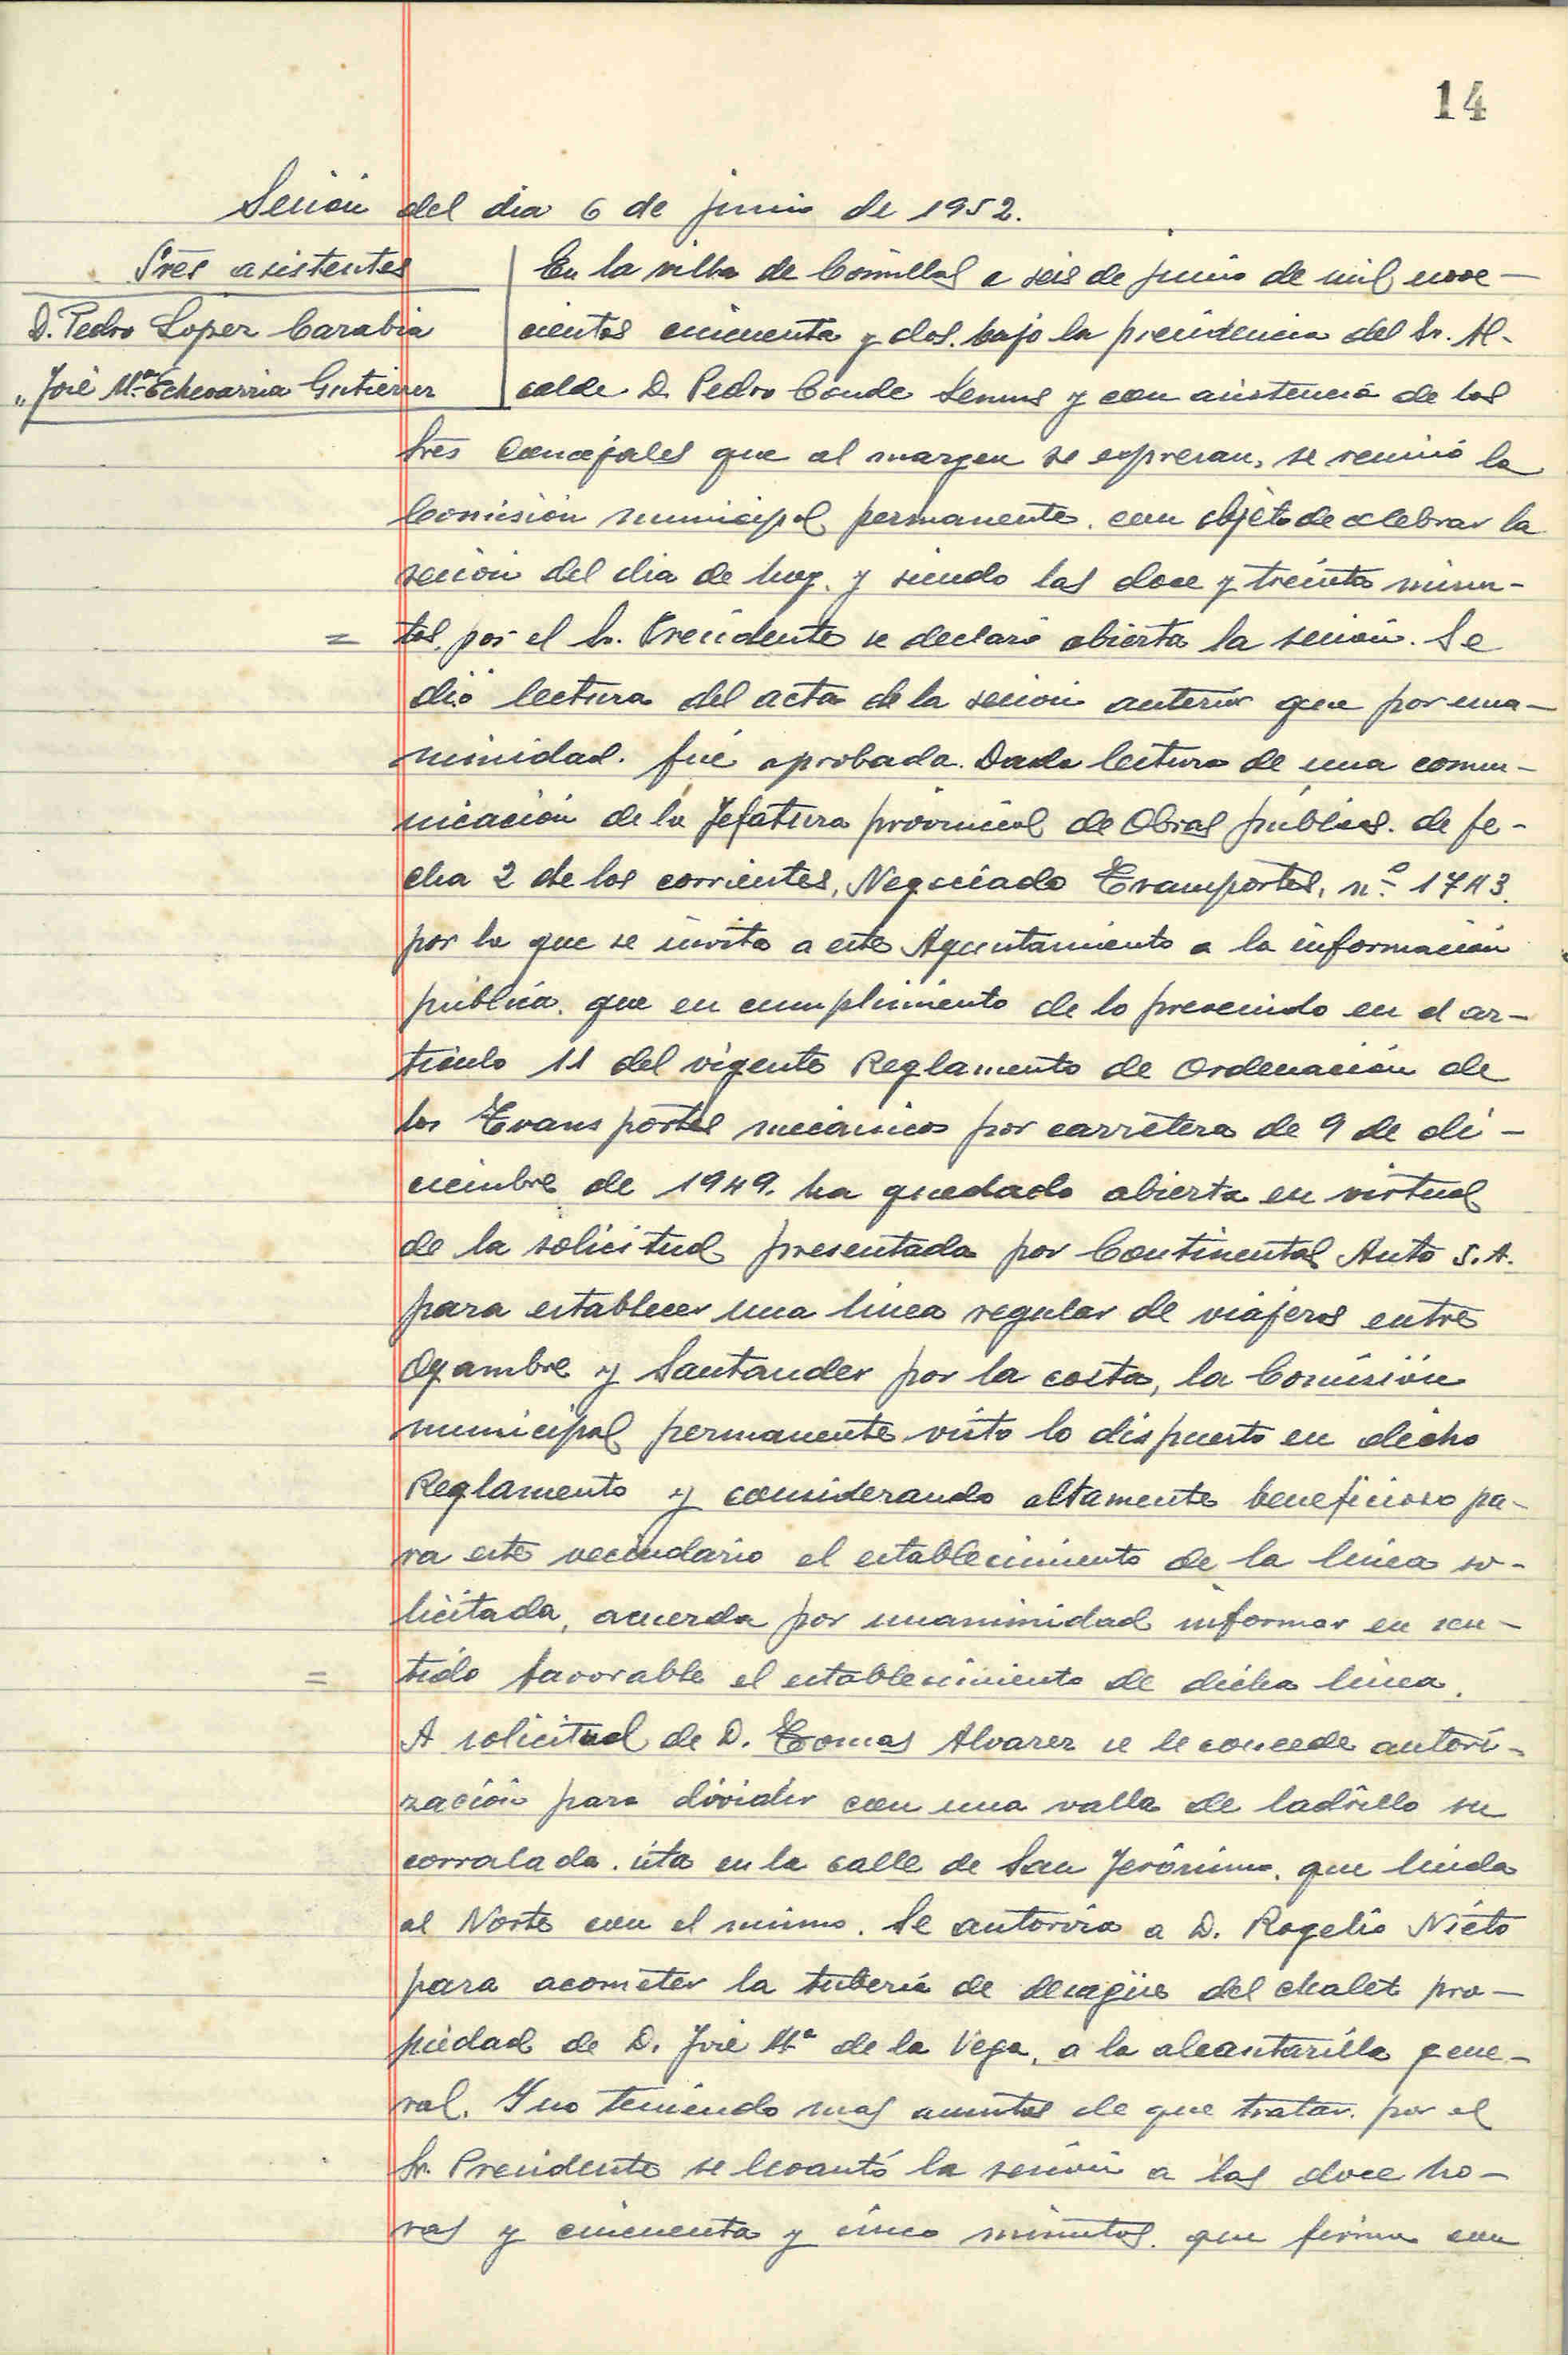 14
Sesión del dia 6 de junio de 1952.
Sres asistentes
D. Pedro Lopez Carabia
„ José Mª Echevarria Gutierrez
En la villa de Comillas a seis de junio de mil nove-
cientos cincuenta y dos. bajo la presidencia del Sr. Al-
calde D. Pedro Conde y con asistencia de los
Sres Concejales que al margen se expresan, se reunió la
Comisión municipal permanente. con objeto de celebrar la
sesión del dia de hoy. y siendo las doce y treinta minu-
= tos, por el Sr. Presidente se declaró abierta la sesión. Se
dió lectura del acta de la sesión anterior que por una-
nimidad. fué aprobada. Dada lectura de una comu-
nicación de la Jefatura provincial de Obras públicas. de fe-
cha 2 de los corrientes, Negociado Transportes, nº 1743.
por la que se invita a este Ayuntamiento a la información
pública. que en cumplimiento de lo prevenido en el ar-
ticulo 11 del vigente Reglamento de Ordenación de
los Transportes mecánicos por carretera de 9 de di-
ciembre de 1949. ha quedado abierta en virtud
de la solicitud presentada por Continental Auto S.A.
para establecer una linea regular de viajeros entre
Oyambre y Santander por la costa, la Comisión
municipal permanente visto lo dispuesto en dicho
Reglamento y considerando altamente beneficioso pa-
ra este vecindario el establecimiento de la linea so-
licitada, acuerda por unanimidad informar en sen-
= tido favorable el establecimiento de dicha linea.
A solicitud de D. Tomas Alvarez se le concede autori-
zación para dividir con una valla de ladrillo su
corralada. sita en la calle de San Jerónimo. que linda
al Norte con el mismo. Se autoriza a D. Rogelio Nieto
para acometer la tuberia de desagüe del chalet pro-
piedad de D. José Mª de la Vega, a la alcantarilla gene-
ral. Y no teniendo mas asuntos de que tratar. por el
Sr. Presidente se levantó la sesión a las doce ho-
ras y cincuenta y cinco minutos. que firma con